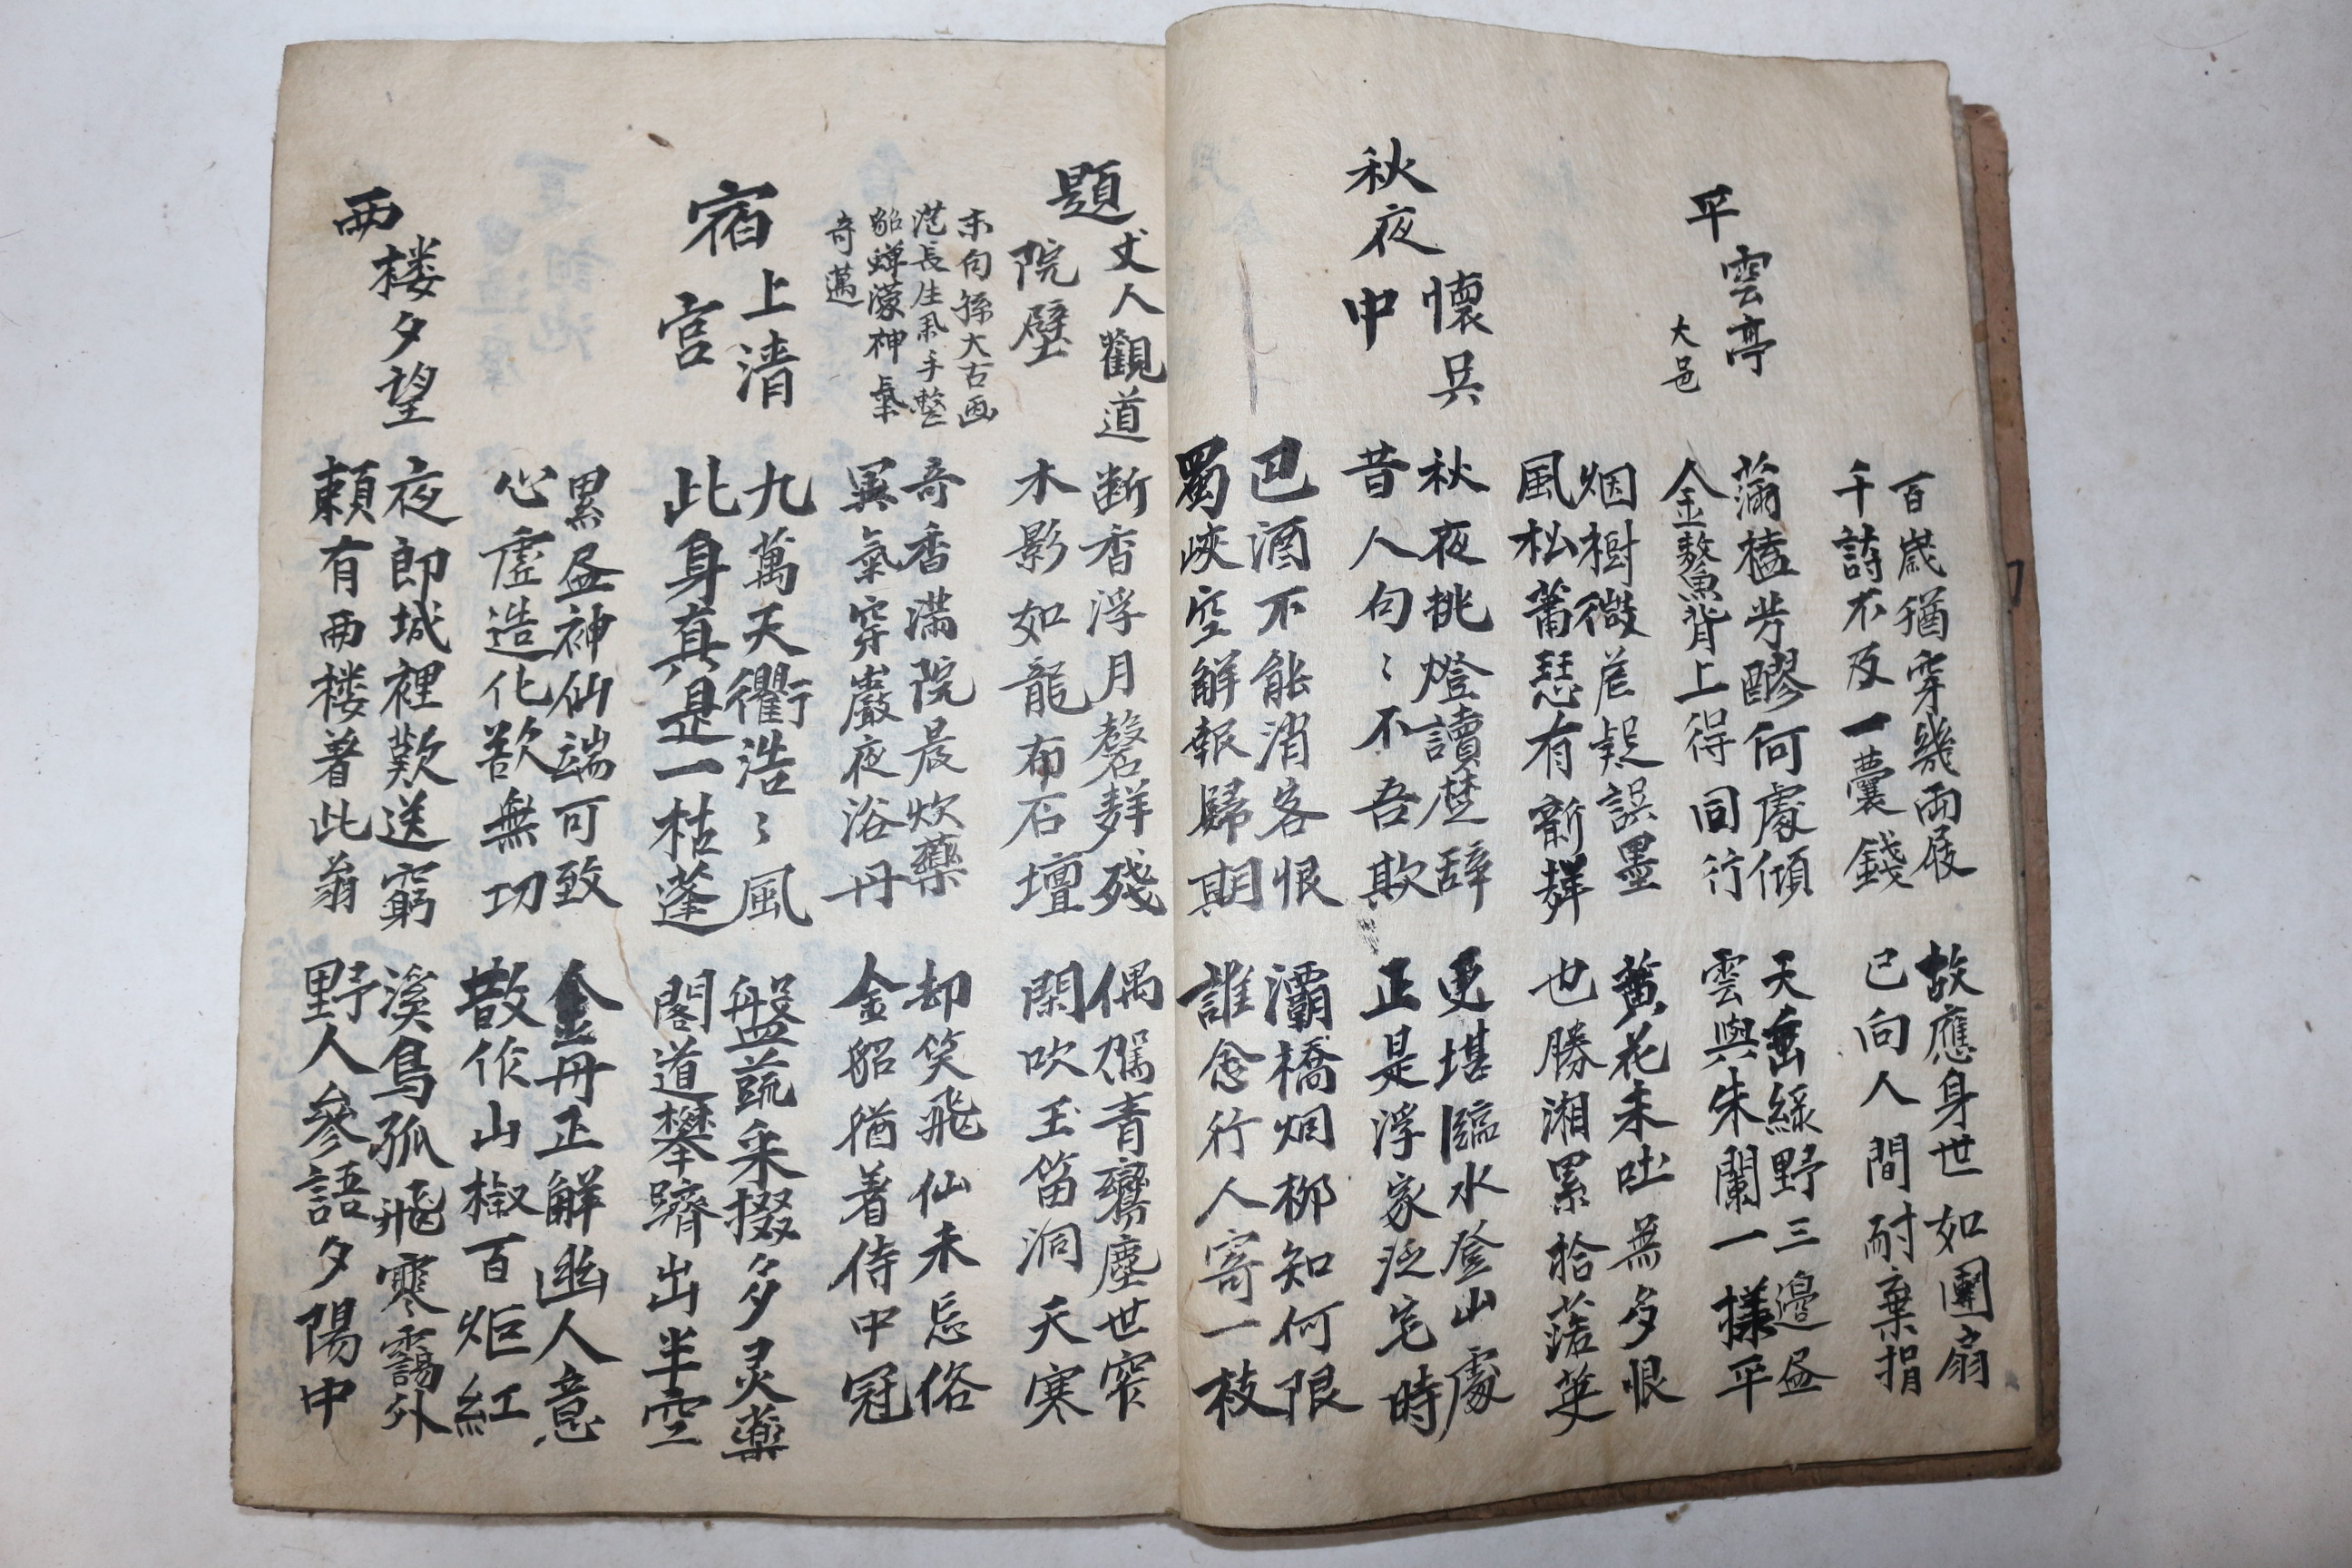 百歲猶穿幾兩屐
千詩不及一囊錢
故應身世如團扇
已向人間耐棄捐
平雲亭
大邑
滿榼芳醪何處傾
金鰲背上得同行
天垂綠野三邊盡
雲與朱闌一樣平
烟樹微茫疑誤墨
風松蕭瑟有新聲
黃花未吐無多恨
也勝湘累拾落英
秋夜懷吳
中
秋夜挑燈讀楚辞
昔人句〻不吾欺
更堪臨水登山處
正是浮家泛宅時
巴酒不能消客恨
蜀峽空解報歸期
灞橋烟柳知何限
誰念行人寄一枝
題丈人觀道
院壁
末句孫太古画
范長生風手整
貂蟬濛神氣
奇邁
断香浮月磬聲殘
木影如龍布石壇
偶駕青鸞塵世窄
閑吹玉笛洞天寒
奇香滿院晨炊藥
異氣穿巖夜浴丹
却笑飛仙未忘俗
金貂猶着侍中冠
宿上清
宮
九萬天衢浩〻風
此身真是一枯蓬
盤蔬采掇多灵藥
閣道攀躋出半空
累盡神仙端可致
心虛造化欲無功
金丹正解幽人意
散作山椒百炬紅
西樓夕望
夜郎城裡歎送窮
賴有西樓着此翁
溪鳥孤飛寒靄外
野人參語夕陽中